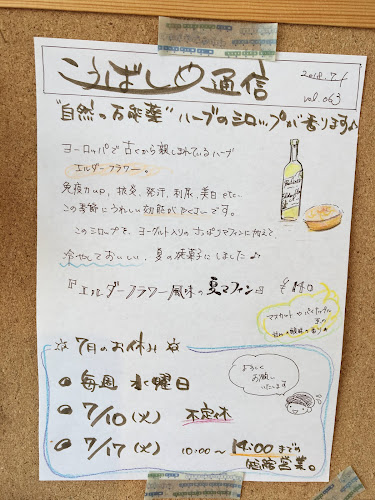 こうばしめ通信
2018.7.4
vol.063
"自然の万能薬" ハーブのシロップが香ります♪
ヨーロッパで古くから親しまれているハーブ
エルダーフラワー。
免疫力up, 抗炎, 発汗, 利尿, 美白 etc..
この季節にうれしい効能がたくさんです。
このシロップを、ヨーグルト入りのさっぱりマフィンに加えて、
冷やしておいしい、夏の焼菓子にしました♪
『エルダーフラワー風味の夏マフィン』
マスカットや
香り
7月のお休み
毎週 水曜日
7/10(火) 不定休
7/17(火) 10:00〜14:00までの
短縮営業。
よろしく
お願い
いたします